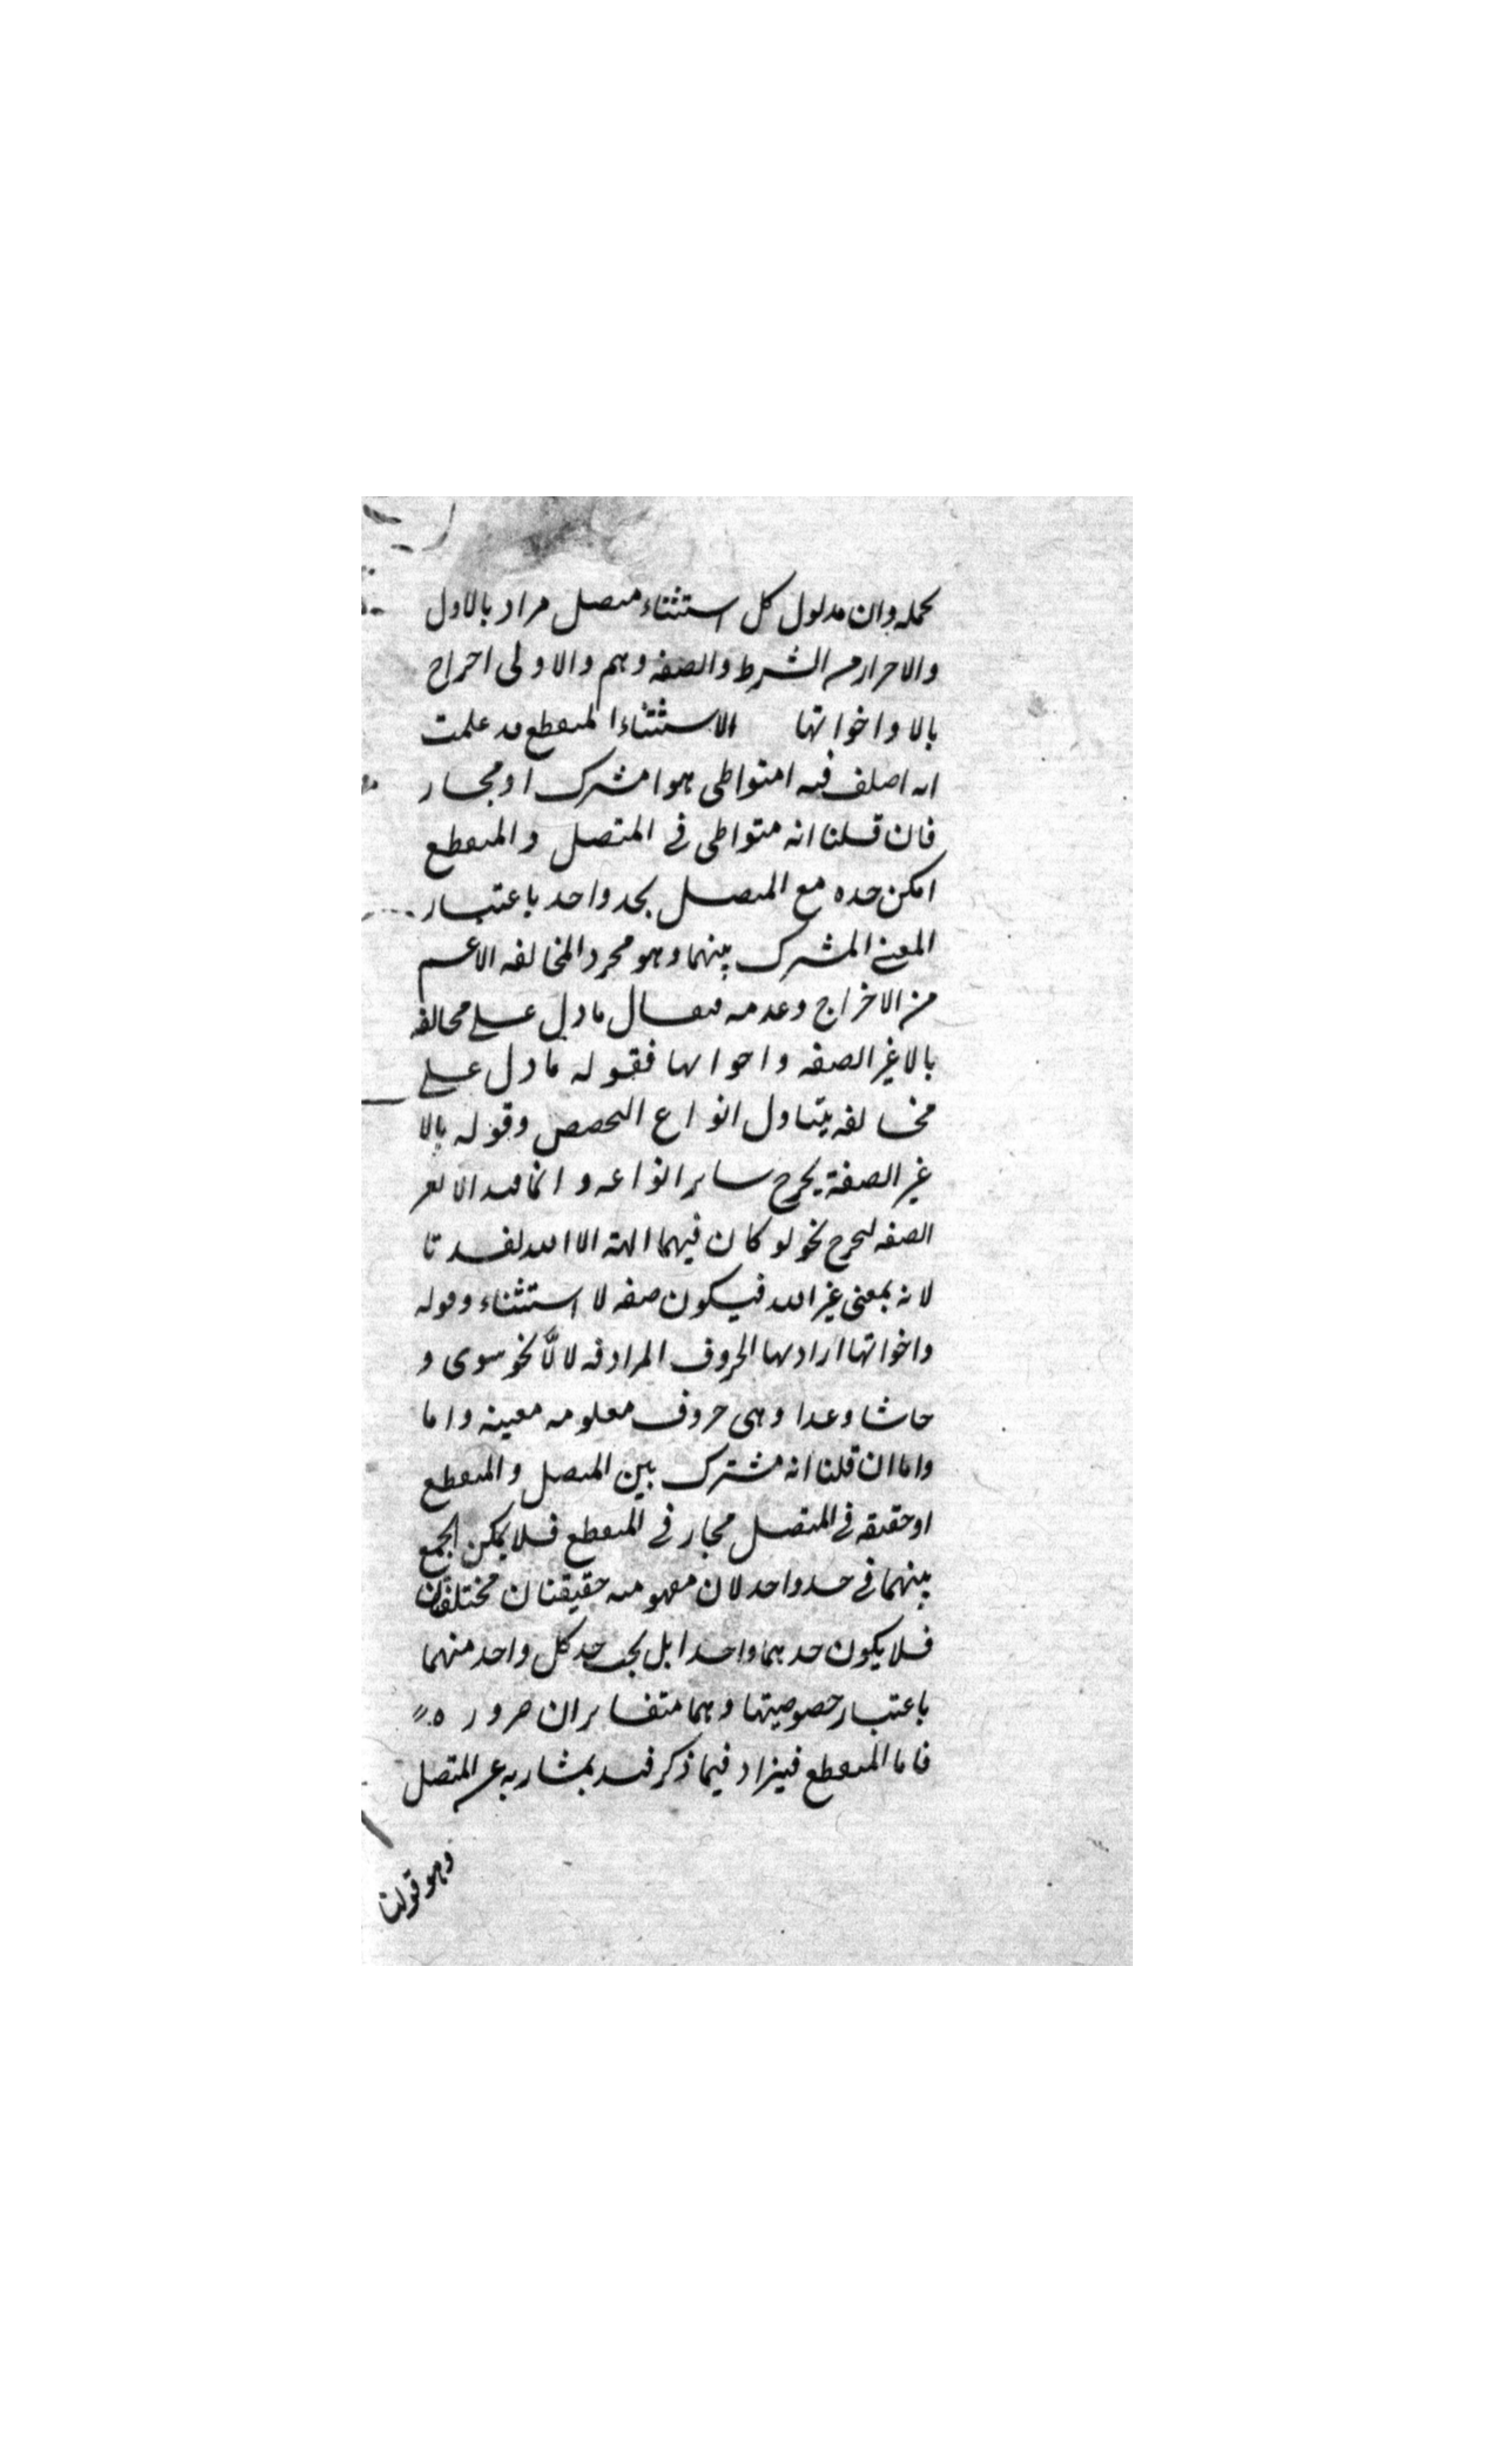 بحمله وان مدلول كل استثناء متصل مراد بالاول
والاحرار من الشرط والصفه وهم والاولى اخراج
بالا واخواتها الاستثناء المنقطع قد علمت
انه اختلف فيه امتواطى هو ا مشترك او مجاز
فان قلنا انه متواطى فى المتصل والمنقطع
امكن حده مع المتصل بحد واحد باعتبار
المعنى المشترك بينهما وهو مجرد المخالفه الاعم
من الاخراج وعدمه فيقال ما دل على مخالفه
بالا غير الصفه واخواتها فقوله ما دل على
مخالفه يتناول انواع التخصص وقوله بالا
غير الصفة يخرج ساير انواعه وانما قيد الا بغير
الصفه ليخرج نحو لو كان فيهما الهة الا الله لفسدتا
لانه بمعنى غير الله فيكون صفه لا استثناء وقوله
واخواتها اراد بها الحروف المرادفه لالَّا نحو سوى و
حاشا وعدا وهى حروف معلومه معينه واما
واما ان قلنا انه مشترك بين المتصل والمنقطع
او حقيقه فى المتصل مجاز فى المنقطع فلا يمكن الجمع
بينهما فى حد واحد لان مفهوميه حقيقتان مختلفتان
فلا يكون حدهما واحدا بل يجب حد كل واحد منهما
باعتبار خصوصيتها وهما متغايران ضروره
فاما المنقطع فيزاد فيما ذكر قيد يمتاز به عن المتصل
وهو قولنا